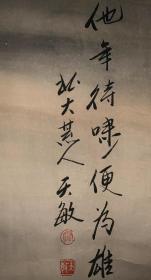 他年待啸便为雄
北大荒人天敏